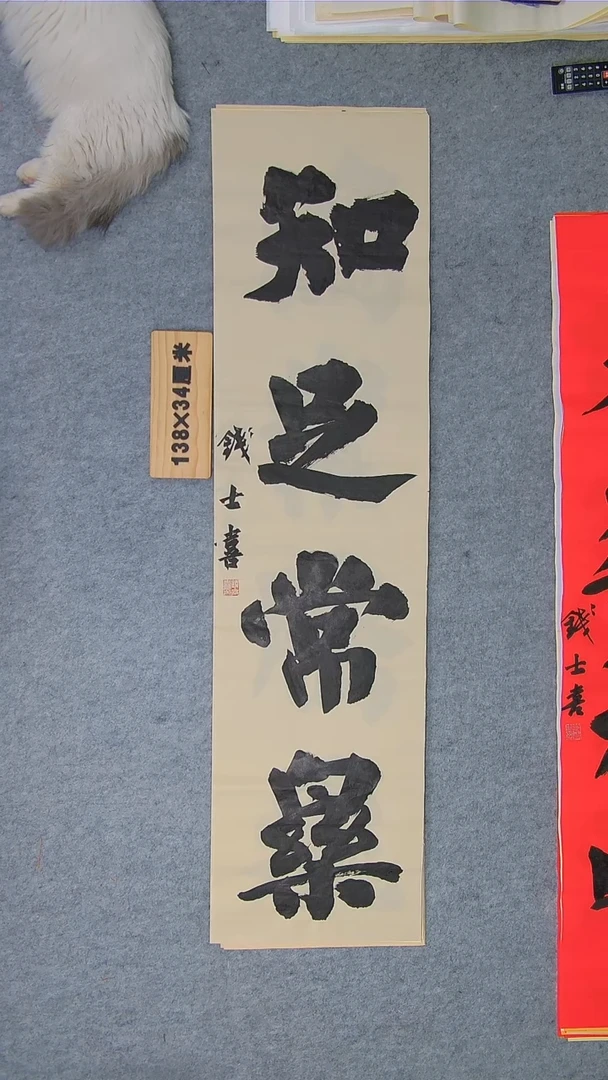 知足常樂
錢士喜
138×34厘米
錢士喜